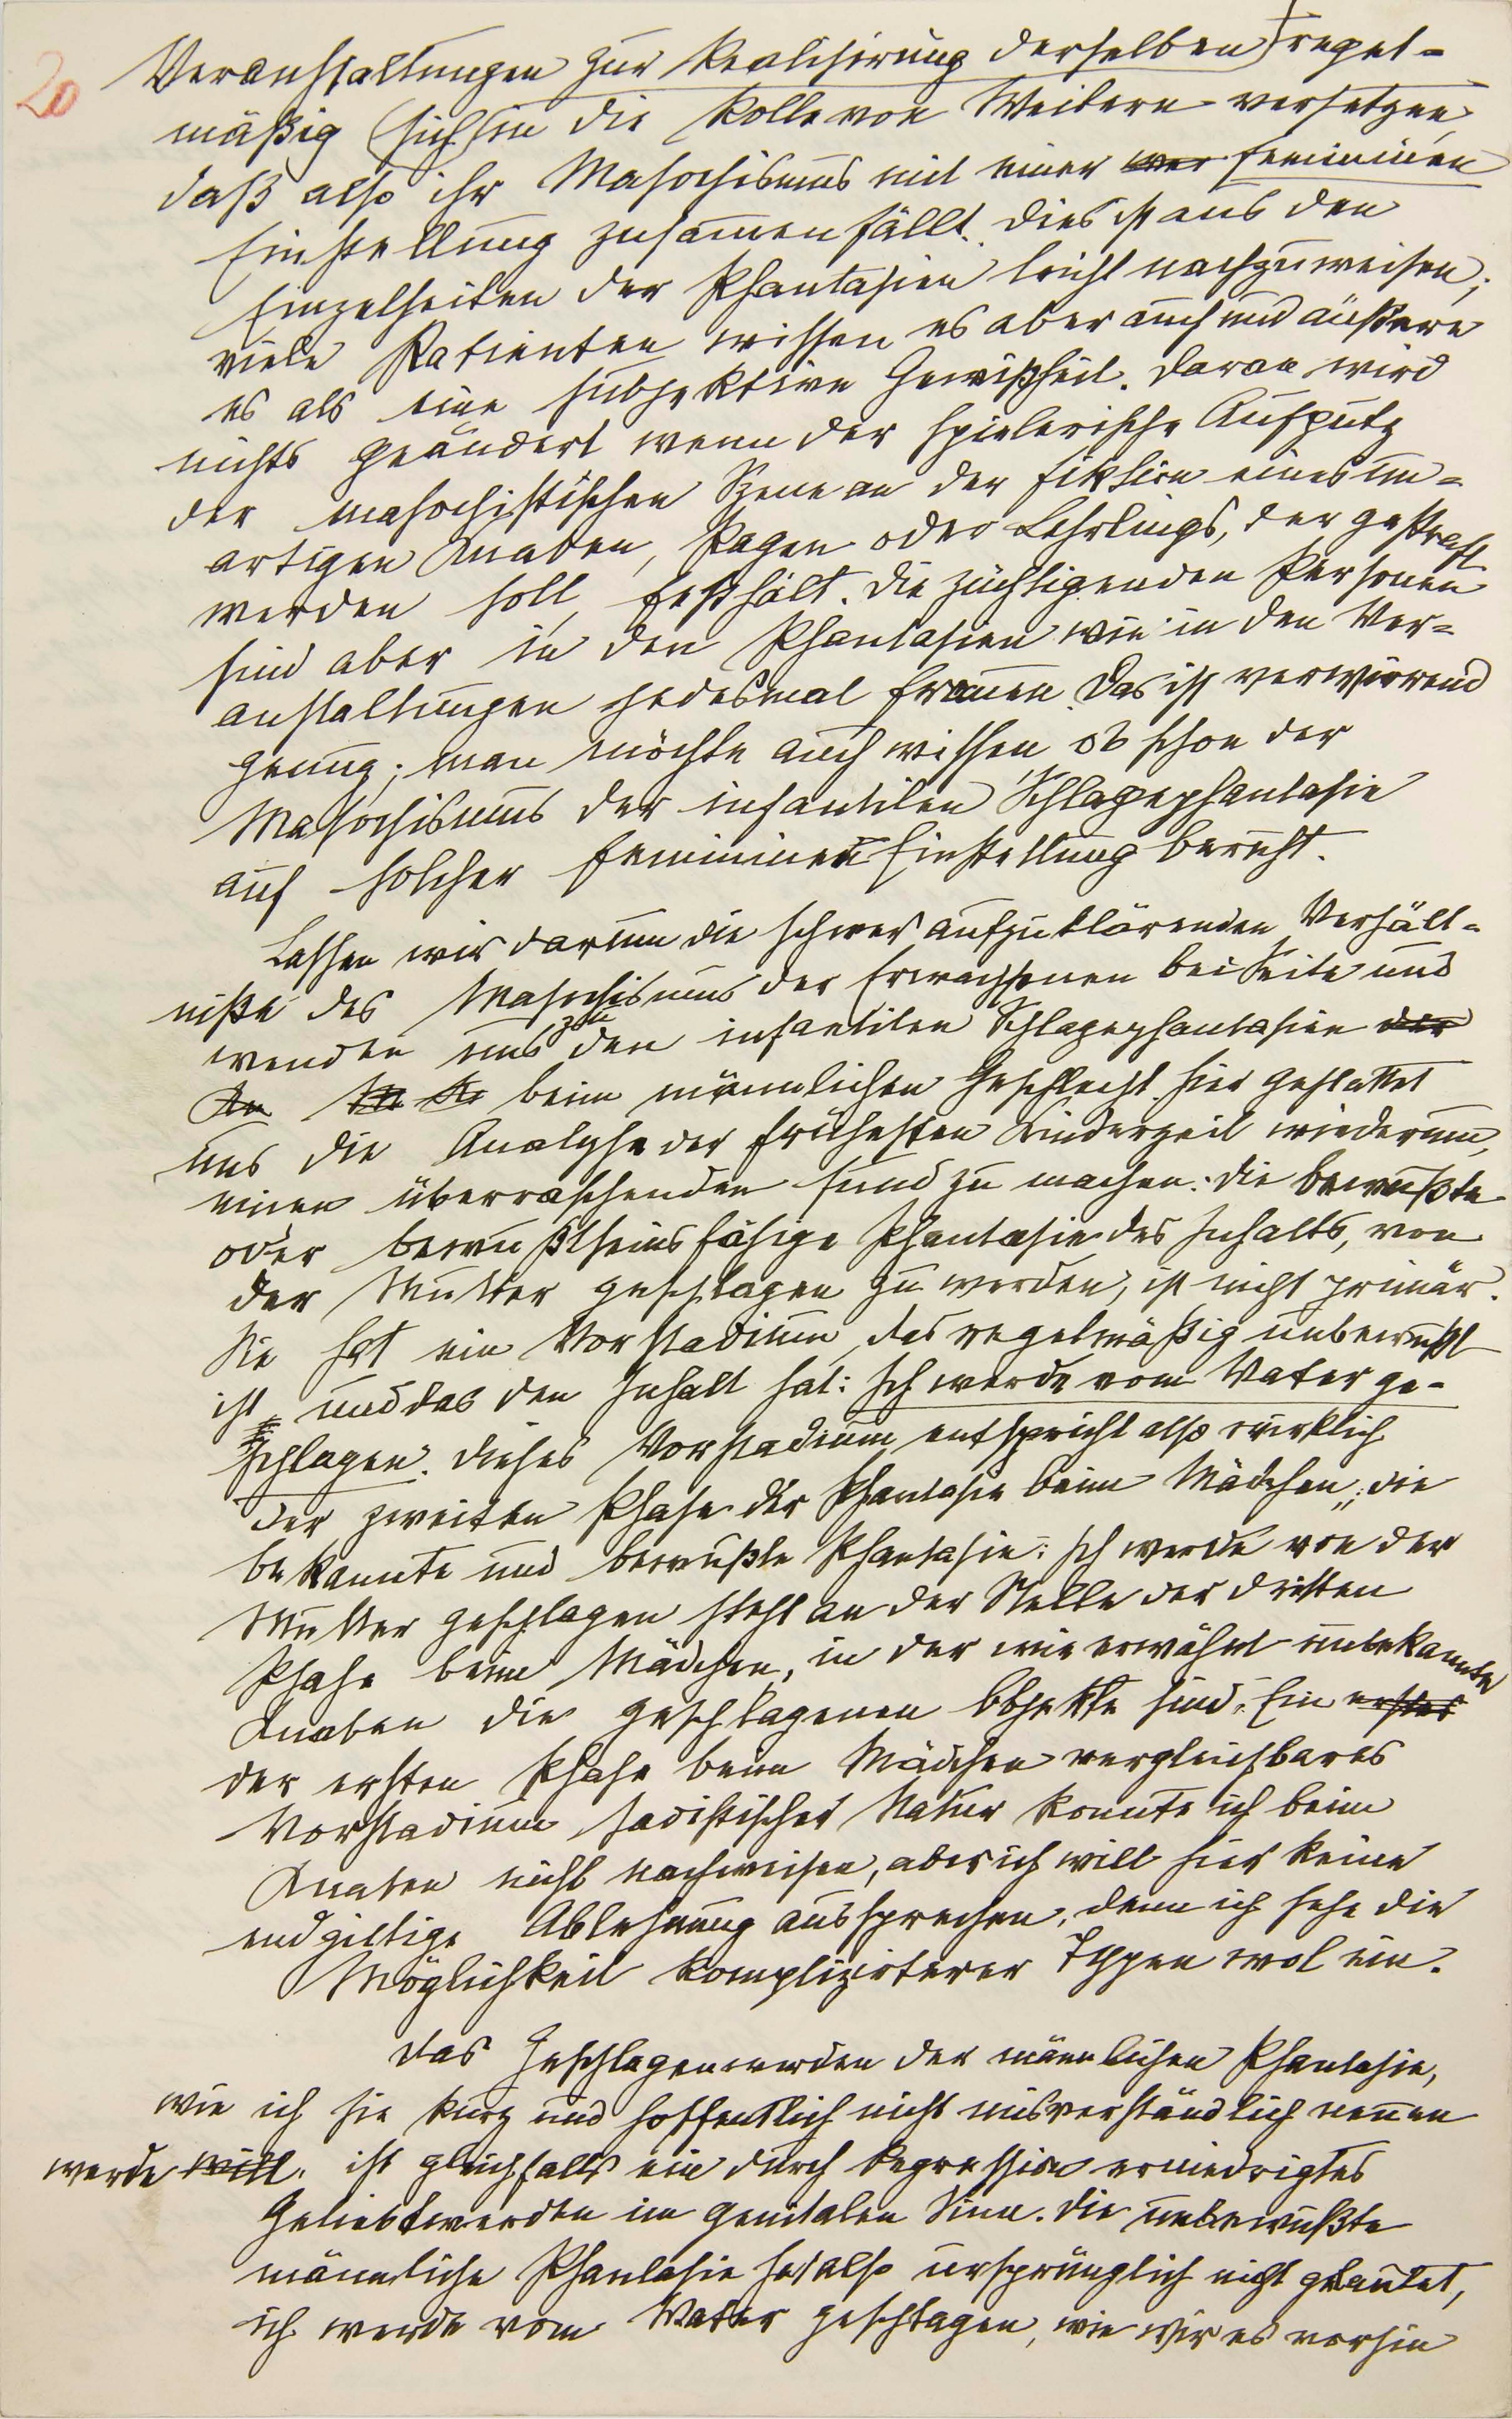 20
Veranstaltungen zur Realisirung derselben regel-
mäßig sich in die Rolle von Weibern versetzen,
daß also ihr Masochismus mit einer femininen
Einstellung zusammenfällt. Dies ist aus den
Einzelheiten der Phantasien leicht nachzuweisen;
viele Patienten wissen es aber auch und äußern
es als eine subjektive Gewißheit. Daran wird
nichts geändert wenn der spielerische Aufputz
der masochistischen Szene an der Fiktion eines un-
artigen Knaben, Pagen oder Lehrlings, der gestraft
werden soll, festhält. Die züchtigenden Personen
sind aber in den Phantasien wie in den Ver-
anstaltungen jedesmal Frauen. Das ist verwirrend
genug; man möchte auch wissen ob schon der
Masochismus der infantilen Schlagephantasie
auf solcher femininen Einstellung beruht.
Lassen wir darum die schwer aufzuklärenden Verhält-
niße des Masochismus der Erwachsenen bei Seite und
wenden uns zu den infantilen Schlagephantasien der
beim männlichen Geschlecht. Hier gestattet
uns die Analyse der frühesten Kinderzeit wiederum,
einen überraschenden Fund zu machen: Die bewußte
oder bewußtseinsfähige Phantasie des Inhalts, von
der Mutter geschlagen zu werden, ist nicht primär.
Sie hat ein Vorstadium, das regelmäßig unbewußt
ist und das den Inhalt hat: Ich werde vom Vater ge-
schlagen. Dieses Vorstadium entspricht also wirklich
der zweiten Phase der Phantasie beim Mädchen; die
bekannte und bewußte Phantasie: Ich werde von der
Mutter geschlagen steht an der Stelle der dritten
Phase beim Mädchen, in der wie erwähnt unbekannte
Knaben die geschlagenen Objekte sind. Ein erstes
der ersten Phase beim Mädchen vergleichbares
Vorstadium sadistischer Natur konnte ich beim
Knaben nicht nachweisen, aber ich will hier keine
endgiltige Ablehnung aussprechen, denn ich sehe die
Möglichkeit komplizirterer Typen wol ein.
Das Geschlagenwerden der männlichen Phantasie,
wie ich sie kurz und hoffentlich nicht misverständlich nennen
werde will, ist gleichfalls ein durch Regression erniedrigtes
Geliebtwerden im genitalen Sinn. Die unbewußte
männliche Phantasie hat also ursprünglich nicht gelautet,
ich werde vom Vater geschlagen, wie wir es vorhin